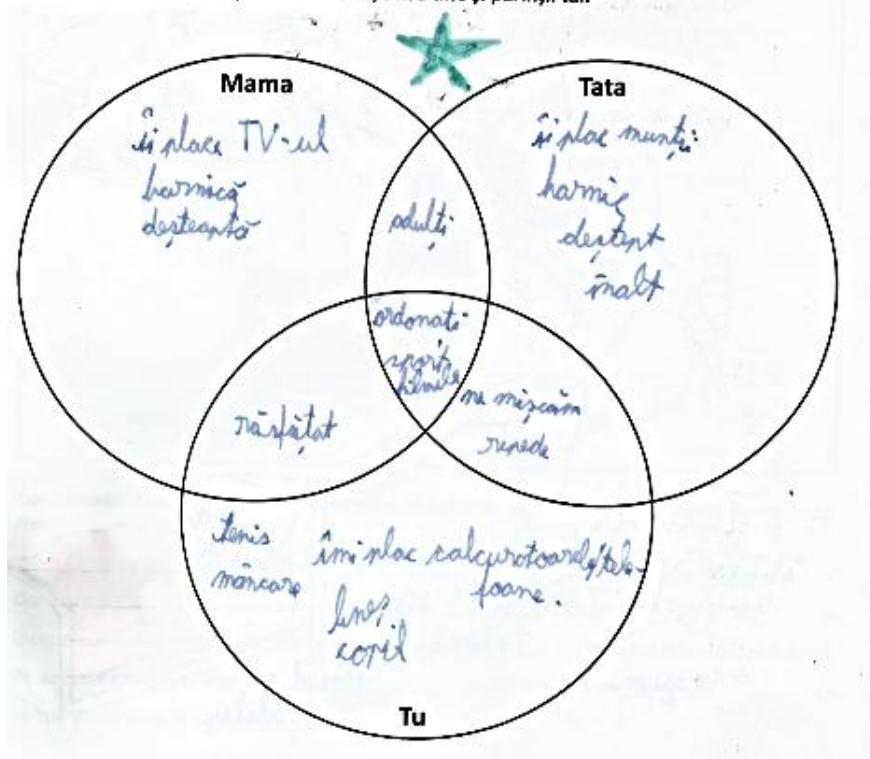 și părinții tăi
Mama
Tata
îi place TV-ul
harnică
deșteaptă
îi plac munții
harnic
deștept
înalt
adulți
ordonați
sport
filmele
răsfățat
ne mișcăm
repede
tenis
mâncare
îmi plac calcuratoarele/tele-
foane.
copil
Tu